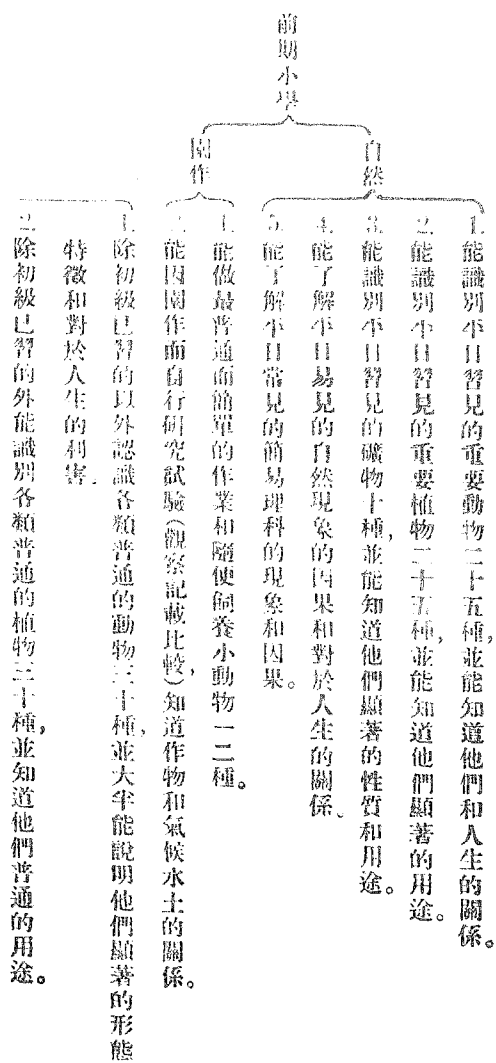 前期小學
自然
1. 能識別平日習見的重要動物二十五種，並能知道他們和人生的關係。
2. 能識別平日習見的重要植物二十五種，並能知道他們顯著的用途。
3. 能識別平日習見的礦物十種，並能知道他們顯著的性質和用途。
4. 能了解平日易見的自然現象的因果和對於人生的關係。
5. 能了解平日常見的簡易理科的現象和因果。
園作
1. 能做最普通而簡單的作業和隨便飼養小動物一二種。
2. 能因園作而自行研究試驗（觀察記載比較），知道作物和氣候水土的關係。
1. 除初級已習的以外認識各類普通的動物二十種，並大半能說明他們顯著的形態
特徵和對於人生的利害。
2. 除初級已習的外能識別各類普通的植物三十種，並知道他們普通的用途。